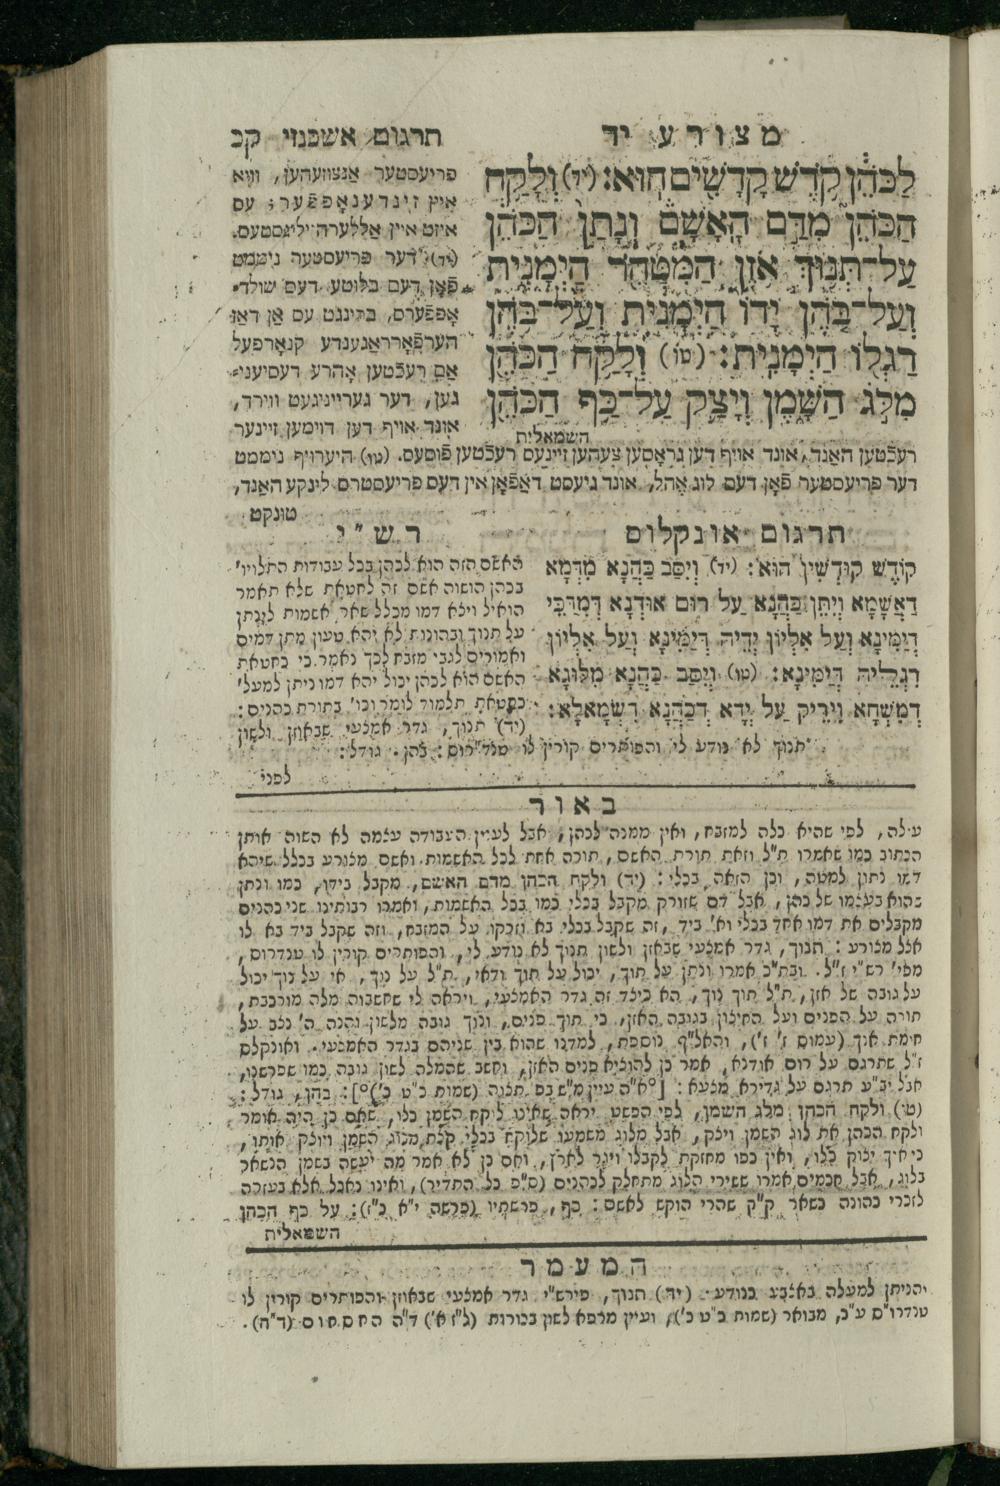 מצורע יד
תרגום אשכנזי קכ
לַכֹּהֵן קֹדֶשׁ קָדָשִׁים הוּא: (יד) וְלָקַח
הַכֹּהֵן מִדַּם הָאָשָׁם וְנָתַן הַכֹּהֵן
עַל־תְּנוּךְ אֹזֶן הַמִּטַּהֵר הַיְמָנִית
וְעַל־בֹּהֶן יָדוֹ הַיְמָנִית וְעַל־בֹּהֶן
רַגְלוֹ הַיְמָנִית: (טו) וְלָקַח הַכֹּהֵן
מִלֹּג הַשָּׁמֶן וְיָצַק עַל־כַּף הַכֹּהֵן
השמאלית
פריעסטער אנצוזעהען, וויא
איין זינדענאָפפֿער; עס
איזט איין אללערהייליגסטעס.
(יד) דער פריעסטער ניממט
פֿאָן דעם בלוטע דעס שולד־
אָפפֿערס, ברינגט עס אן דאז
הערפֿאָרראגענדע קנאָרפעל
אם רעכֿטען אָהרע דעסיעני־
גען, דער גערייניגעט ווירד,
אונד אויף דען דוימען זיינער
רעכֿטען האנד, אונד אויף דען גראָסען צעהען זיינעס רעכֿטען פֿוסעס. (טו) היערויף ניממט
דער פריעסטער פֿאָן דעם לוג אֶהל, אונד גיעסט דאפֿאָן אין דעס פריעסטרס לינקע האנד,
טונקט
תרגום אונקלוס
קוֹדֶשׁ קוּדְשִׁין הוּא: (יד) וְיִסַּב כַּהֲנָא מִדְּמָא
דַאֲשָׁמָא וְיִתֵּן כַּהֲנָא עַל רוּם אוּדְנָא דְּמִדַּכֵּי
דְיַמִּינָא וְעַל אִלְיוֹן יְדֵיהּ דְּיַמִּינָא וְעַל אִלְיוֹן
רִגְלֵיהּ דְּיַמִּינָא: (טו) וְיִסַּב כַּהֲנָא מִלּוּגָּא
דְמִשְׁחָא וִירִיק עַל יְדָא דְכַהֲנָא דִּשְׂמָאלָא:
רש"י
האשם הזה הוא לכהן בכל עבודות התלויו'
בכהן הושוה אשם זה לחטאת שלא תאמר
הואיל ויצא דמו מכלל שאר אשמות לינתן
על תנוך ובהונות לא יהא טעון מתן דמים
ואמורים לגבי מזבח לכך נאמר כי כחטאת
האשם הוא לכהן יכול יהא דמו ניתן למעל'
כחטאת תלמוד לומר וכו' בתורת כהנים:
(יד) תנוך, גדר אמצעי שבאוזן ולשון
תנוך לא נודע לי והפותרים קורין לו טנד"רוס: בהן. גודל:
לפני
באור
עולה, לפי שהיא כלה למזבח, ואין ממנה לכהן, אבל לענין העבודה עצמה לא השוה אותן
הכתוב כמו שאמרו ת"ל וזאת תורת האשם, תורה אחת לכל האשמות. ואשם מצורע בכלל שיהא
דמו נתון למטה, וכן הזאה בכלי: (יד) ולקח הכהן מדם האשם, מקבל בידו, כמו ונתן
שהוא בעצמו של כהן, אבל דם שזורק מקבל בכלי כמו בכל האשמות, ואמרו רבותינו שני כהנים
מקבלים את דמו אחד בכלי וא' ביד, זה שקבל בכלי בא וזרקו על המזבח, וזה שקבל ביד בא לו
אצל מצורע: תנוך, גדר אמצעי שבאזן ולשון תנוך לא נודע לי, והפותרים קורין לו טנדרוס,
מפי' רש"י ז"ל. ובת"כ אמרו ונתן על תוך, יכול על תוך ודאי, ת"ל על נוך, אי על נוך יכול
על גובה של אזן, ת"ל תוך נוך, הא כיצד זה גדר האמצעי, ויראה לי שחשבוה מלה מורכבת,
תורה על הפנים ועל החיצון בגובה האזן, כי תוך פנים, ונוך גובה מלשון והנה ה' נצב על
חומת אנך (עמוס ז' ז'), והאל"ף נוספת, למדנו שהוא בין שניהם בגדר האמצעי. ואונקלס
ז"ל שתרגם על רום אודנא, אמר כן להוציא פנים האזן, וחשב שהמלה לשון גובה כמו שפרשנו,
אבל יב"ע תרגם על גדירא מצעא: [°א"ה עיין מ"ש בפ' תצוה (שמות כ"ט כ')°]: בהן, גודל:
(טו) ולקח הכהן מלג השמן, לפי הפשט יראה שאינו לוקח השמן כלו, שאם כן היה אומר
ולקח הכהן את לוג השמן ויצק, אבל מלוג משמעו שלוקח בכלי קצת מלוג השמן ויוצק אותו,
כי איך יצוק כלו, ואין כפו מחזקת לקבלו ויגר לארץ, ואם כן לא אמר מה יעשה בשמן הנשאר
בלוג, אבל חכמים אמרו ששירי הלוג מתחלק לכהנים (ס"פ כל התדיר), ואינו נאכל אלא בעזרה
לזכרי כהונה כשאר ק"ק שהרי הוקש לאשם: כף, פרשתיו (פרשה י"א כ"ז): על כף הכהן
השמאלית
המעמר
והניתן למעלה באצבע כנודע. (יד) תנוך, פירש"י גדר אמצעי שבאוזן והפותרים קורין לו
טנדרו"ס ע"כ, מבואר (שמות כ"ט כ'), ועיין מרפא לשון בכורות (ל"ז א') ד"ה החסחוס (ד"ח).